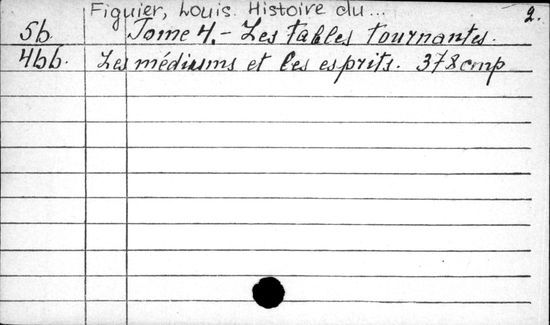 Figuier, Louis. Histoire du... 2.
5b. Tome 4.- Les tables tournantes.
4bb. Les médiums et les esprits. 378 cmp